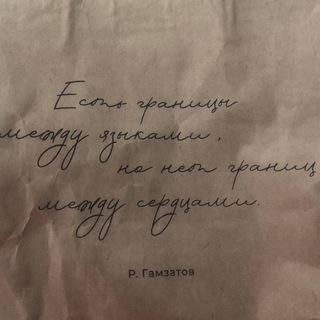 Есть границы
между языками,
но нет границ
между сердцами.
Р. Гамзатов